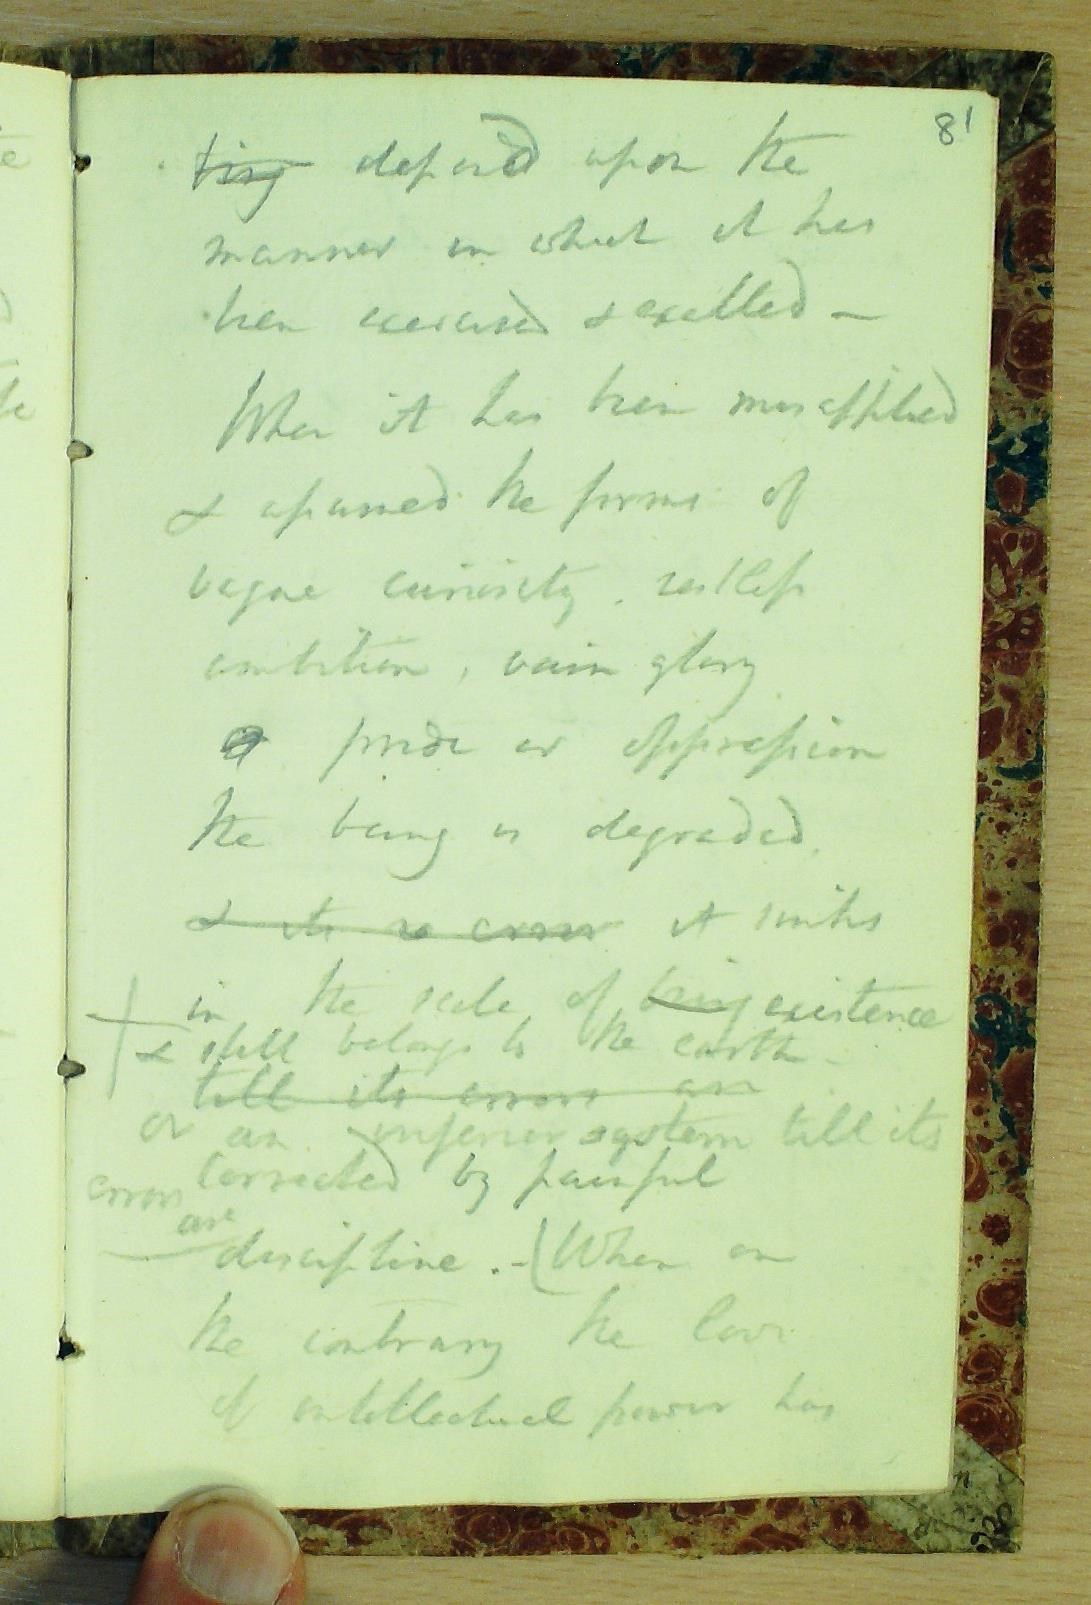 81
ting depend upon the
manner in which it has
been exercised & exalted –
When it has been misapplied
& assumed the forms of
vague curiosity, restless
ambition, vain glory
pride or oppression
the being is degraded,
& its error it sinks
in the scale of being existence
& still belongs to the earth –
till its errors are
or an inferior system till its
errors corrected by painful
are
discipline. – (When on
the contrary the love
of intellectual power has